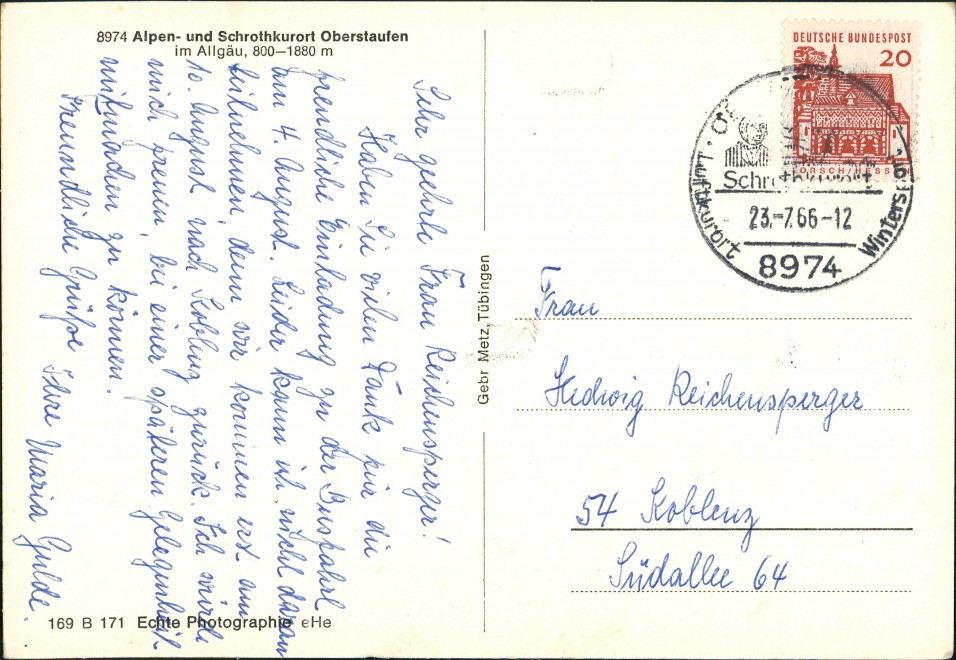 8974 Alpen- und Schrothkurort Oberstaufen
im Allgäu, 800—1880 m
Sehr geehrte Frau Reichensperger!
Haben Sie vielen Dank für die
freundliche Einladung zu der Busfahrt
am 4. August. Leider kann ich nicht daran
teilnehmen, denn wir kommen erst am
10. August nach Koblenz zurück. Ich würde
mich freuen, bei einer späteren Gelegenheit
mitmachen zu können.
Freundliche Grüße Ihre Maria Gulde.
169 B 171 Echte Photographie eHe
Gebr. Metz, Tübingen
DEUTSCHE BUNDESPOST
20
LORSCH/HESSEN
Luftkurort
Schrothkurort
23.-7.66-12
8974
Frau
Hedwig Reichensperger
54 Koblenz
Südallee 64